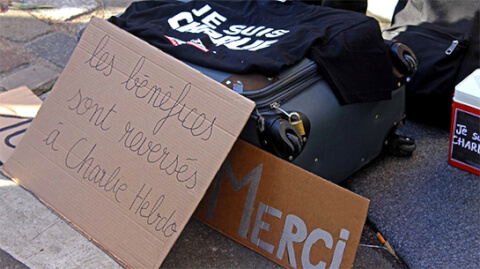 JE SUIS
CHARLIE
les bénéfices
sont reversés
à Charlie Hebdo
Merci
JE SUIS
CHARL